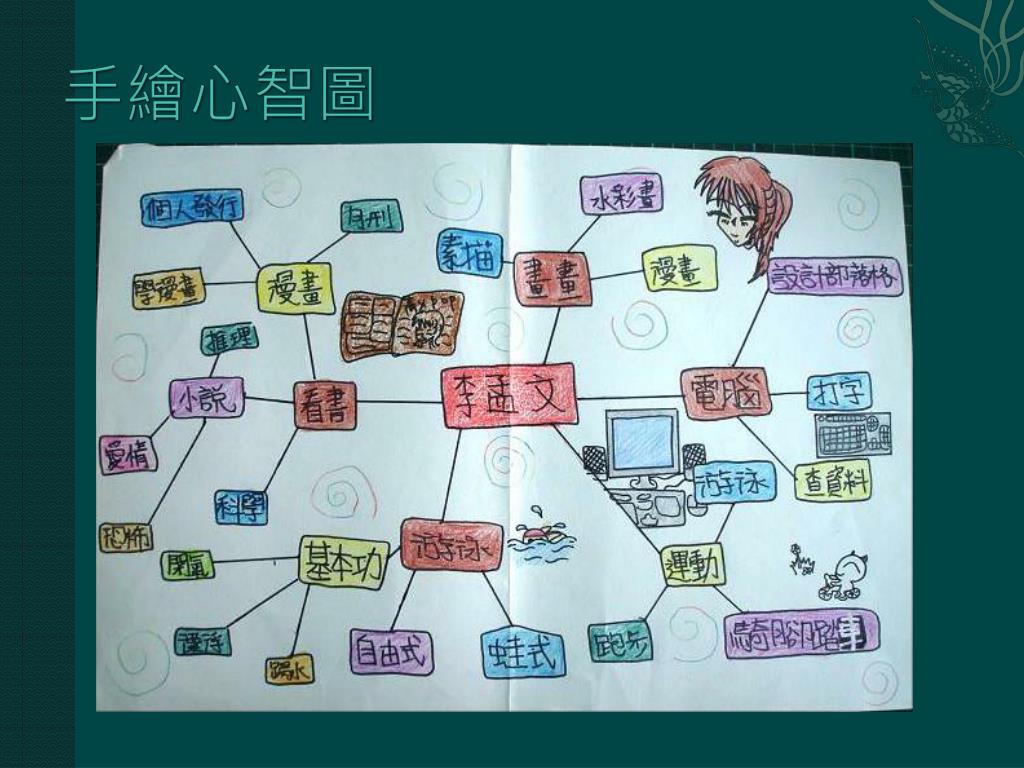 手繪心智圖
個人發行
月刊
學漫畫
漫畫
素描
畫畫
水彩畫
漫畫
設計部落格
推理
小說
看書
李孟文
電腦
打字
愛情
科學
恐怖
游泳
查資料
閉氣
基本功
游泳
運動
踢水
自由式
蛙式
跑步
騎腳踏車